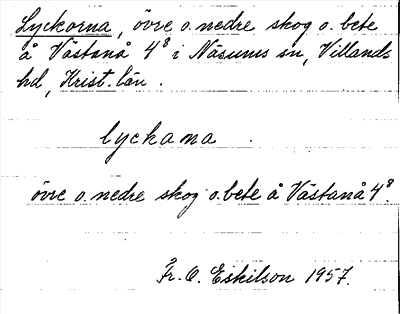 Lyckorna, övre o. nedre skog o. bete
å Västanå 4⁸ i Näsums sn, Villands
hd, Krist. län.
lyckana
övre o. nedre skog o. bete å Västanå 4⁸.
Fr. O. Eskilson 1957.